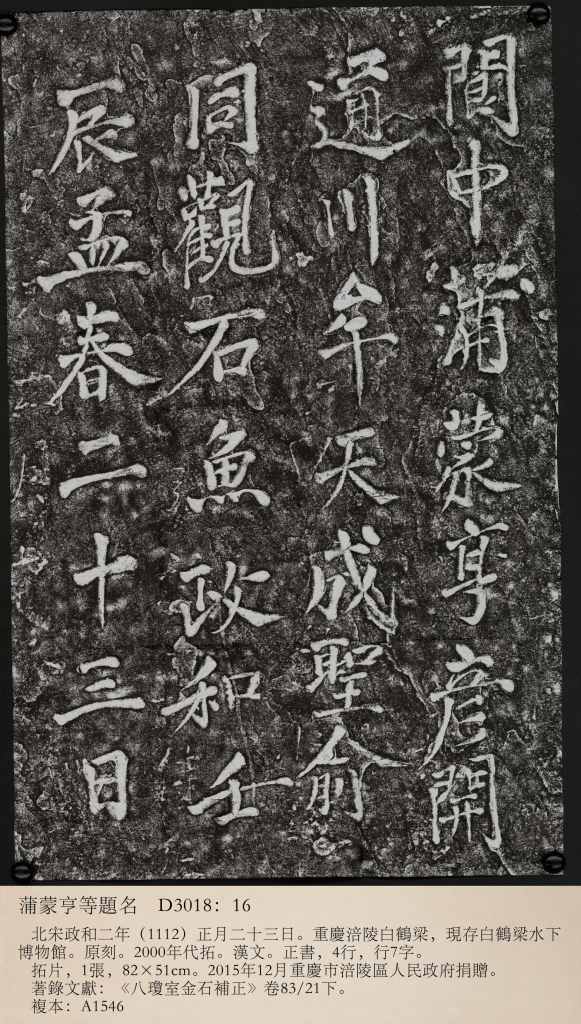 閬中蒲蒙亨彦開
通川牟天成聖俞
同觀石魚政和壬
辰孟春二十三日
蒲蒙亨等題名 D3018：16
北宋政和二年（1112）正月二十三日。重慶涪陵白鶴梁，現存白鶴梁水下
博物館。原刻。2000年代拓。漢文。正書，4行，行7字。
拓片，1張，82×51cm。2015年12月重慶市涪陵區人民政府捐贈。
著錄文獻：《八瓊室金石補正》卷83/21下。
複本：A1546